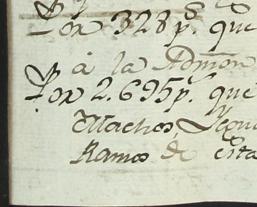 Por 328p.s que
á la Admon
Por 2.695p.s que
Machos, Segu
Ramos de esta